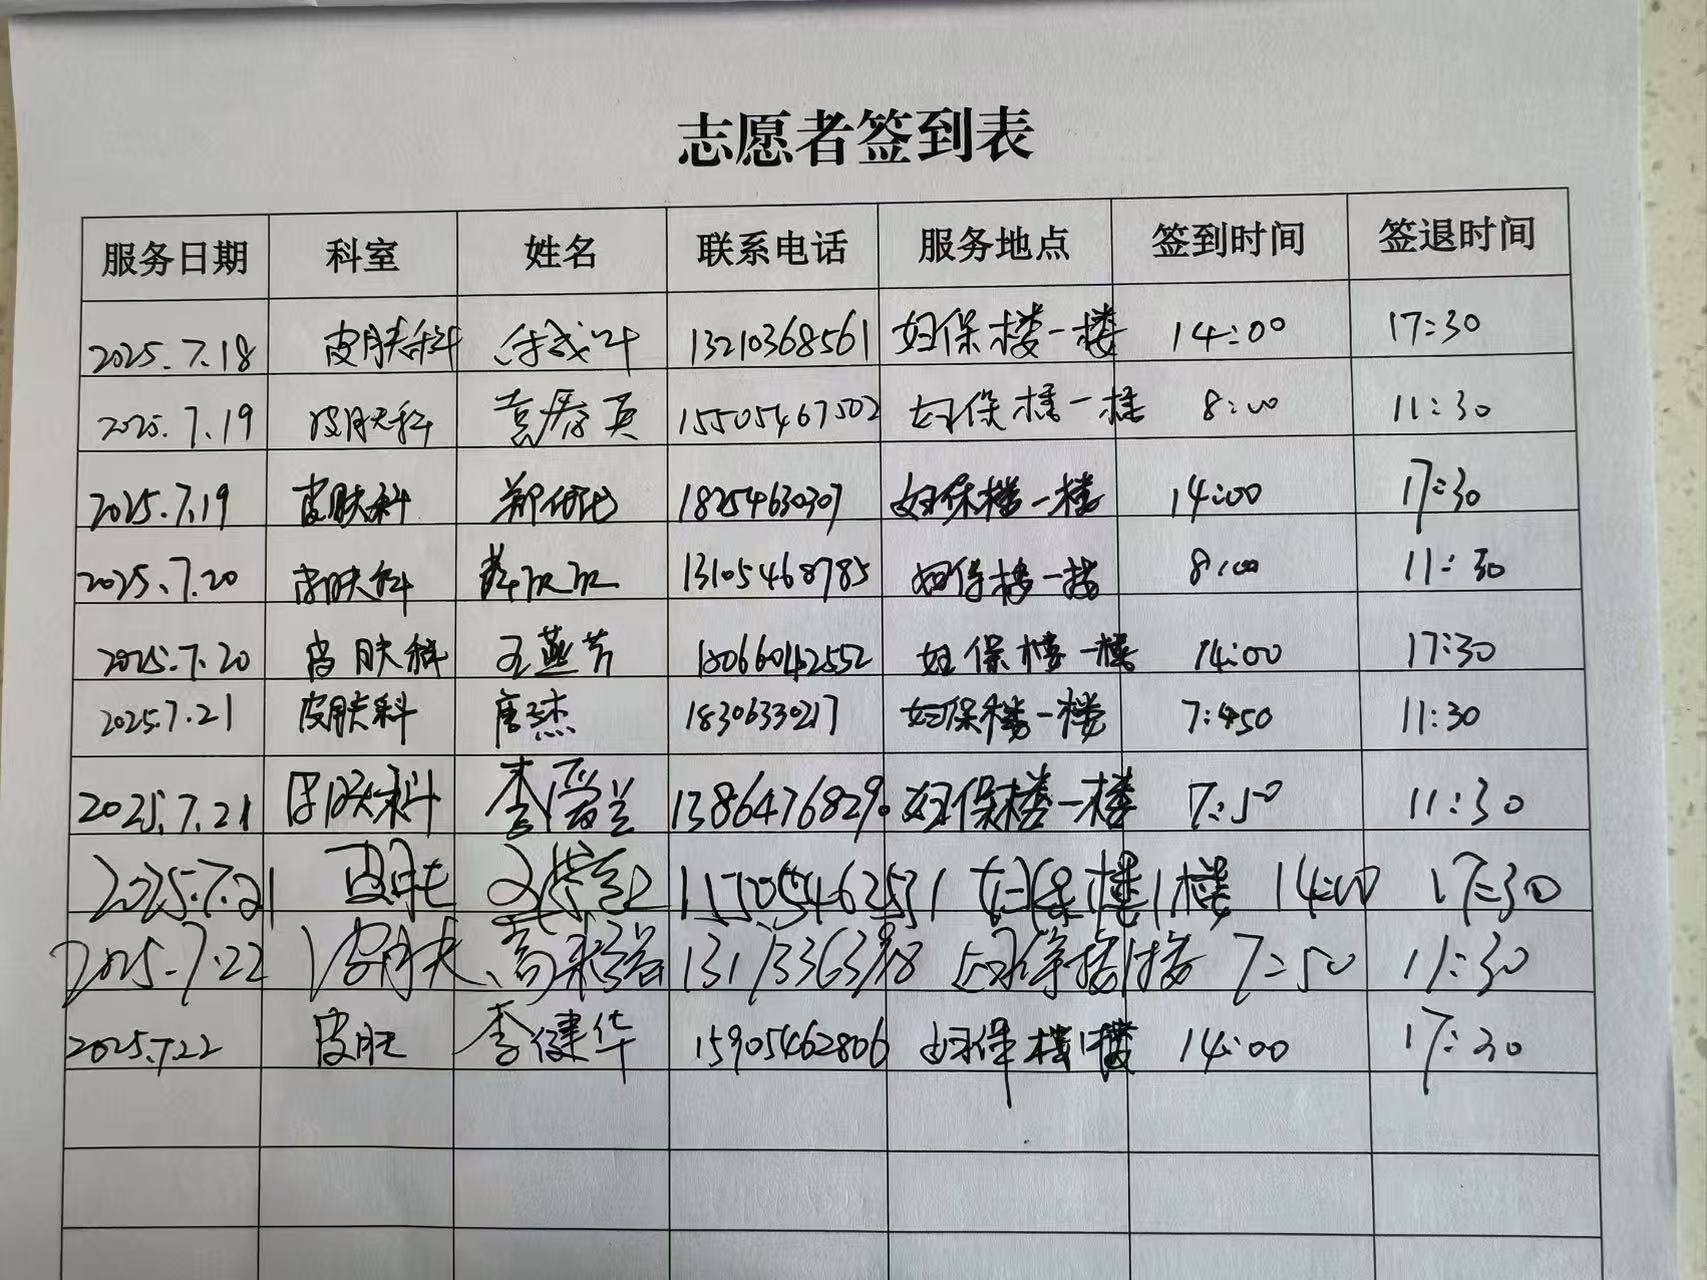 志愿者签到表
服务日期 科室 姓名 联系电话 服务地点 签到时间 签退时间
2025.7.18 皮肤科 13210368561 妇保楼一楼 14:00 17:30
2025.7.19 皮肤科 袁春英 15505467502 妇保楼一楼 8:00 11:30
2025.7.19 皮肤科 18254630307 妇保楼一楼 14:00 17:30
2025.7.20 皮肤科 13105468785 妇保楼一楼 8:00 11:30
2025.7.20 皮肤科 王燕芳 18066042552 妇保楼一楼 14:00 17:30
2025.7.21 皮肤科 唐杰 18306330217 妇保楼一楼 11:30
2025.7.21 皮肤科 13864768290 妇保楼一楼 7:50 11:30
2025.7.21 皮肤 妇保楼1楼 14:00 17:30
2025.7.22 皮肤 妇保楼1楼 7:50 11:30
2025.7.22 皮肤 李健华 15905462806 妇保楼1楼 14:00 17:30